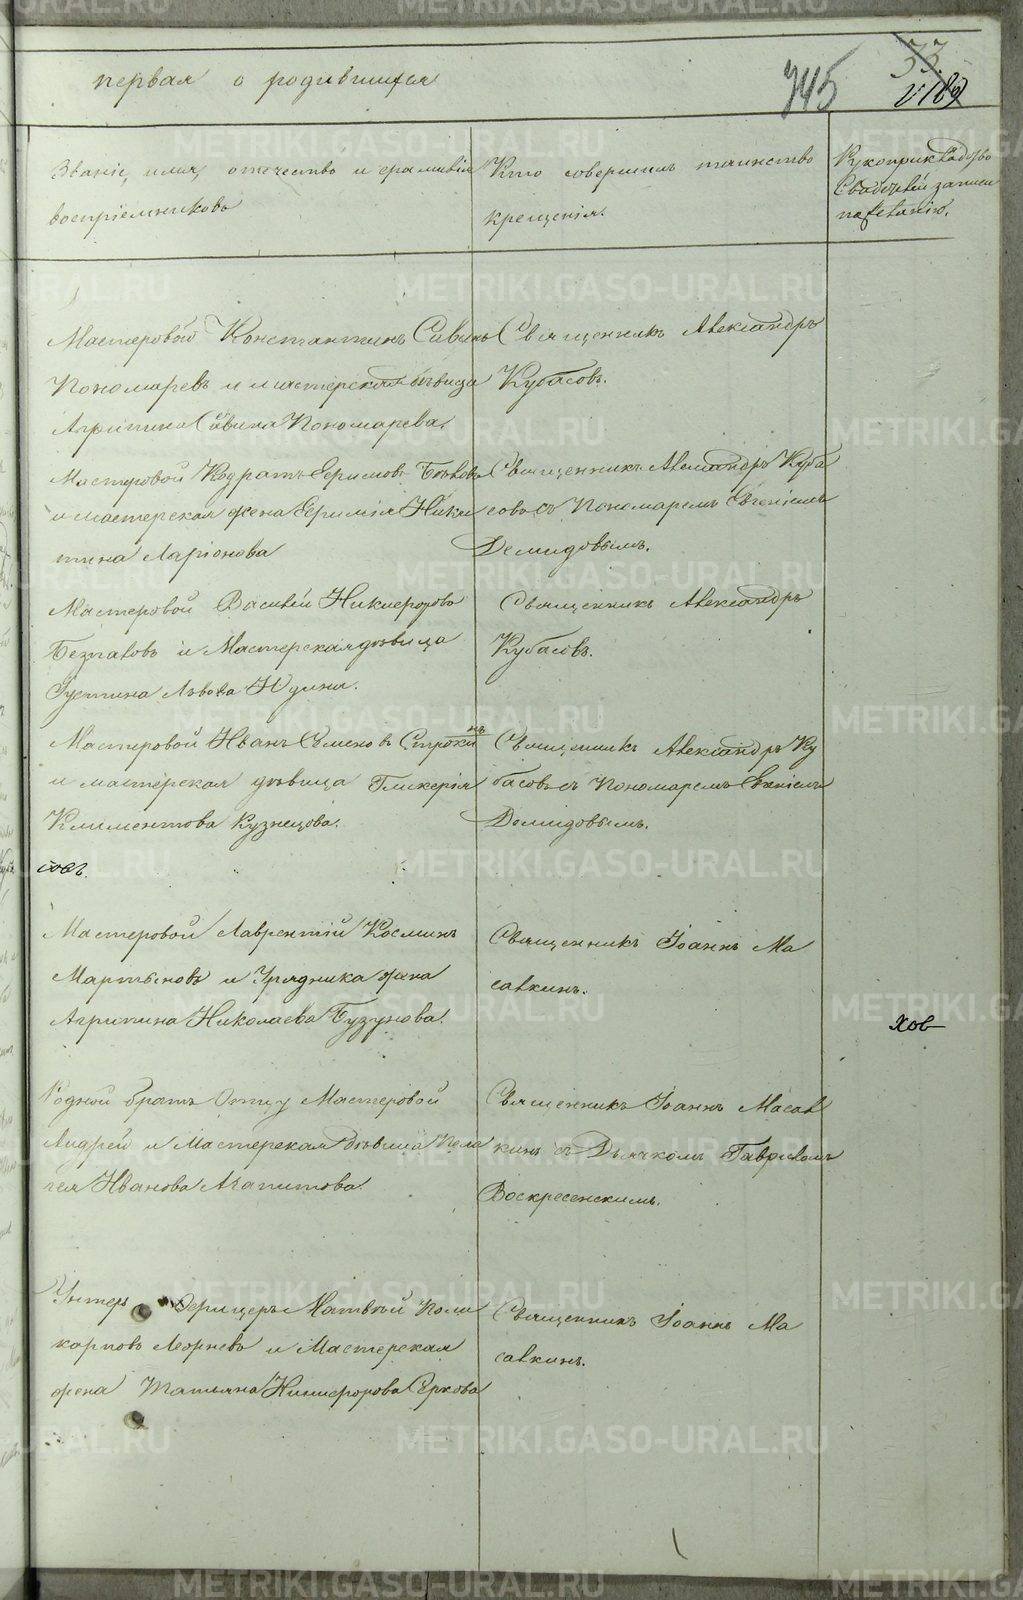 первая о родившихся
745
33
189
Званіе, имя, отчество и фамилія
воспріемниковъ
Кто совершилъ таинство
крещенія.
Рукоприкладство
Свидѣтелей записи
по желанію.
Мастеровой Константинъ Савинъ
Пономаревъ и мастерская дѣвица
Агрипина Савина Пономарева.
Священникъ Александръ
Кубасовъ.
Мастеровой Кодратъ Ефимовъ
и мастерская жена Ефимія Ники
тина Ларіонова
Священникъ Александръ Куба
совъ съ Пономаремъ Евгеніемъ
Демидовымъ.
Мастеровой Василій Никифоровъ
и Мастерская дѣвица
Густина Львова Юдина.
Священникъ Александръ
Кубасовъ.
Мастеровой Иванъ Семеновъ Строкинъ
и мастерская дѣвица Гликерія
Климентова Кузнецова.
Священникъ Александръ Ку
басовъ съ Пономаремъ Евгеніемъ
Демидовымъ.
совъ.
Мастеровой Лаврентій Косминъ
Мартыновъ и Урядника жена
Агрипина Николаева Бузунова.
Священникъ Іоаннъ Ма
савкинъ.
хов
Родной братъ Отцу Мастеровой
Андрей и Мастерская Дѣвица Пела
гея Иванова Агапитова.
Священникъ Іоаннъ Масав
кинъ съ Дьячкомъ Гавриломъ
Воскресенскимъ.
Унтеръ Офицеръ Матвѣй Поли
карповъ и Мастерская
жена Татьяна Никифорова Серкова
Священникъ Іоаннъ Ма
савкинъ.
METRIKI.GASO-URAL.RU